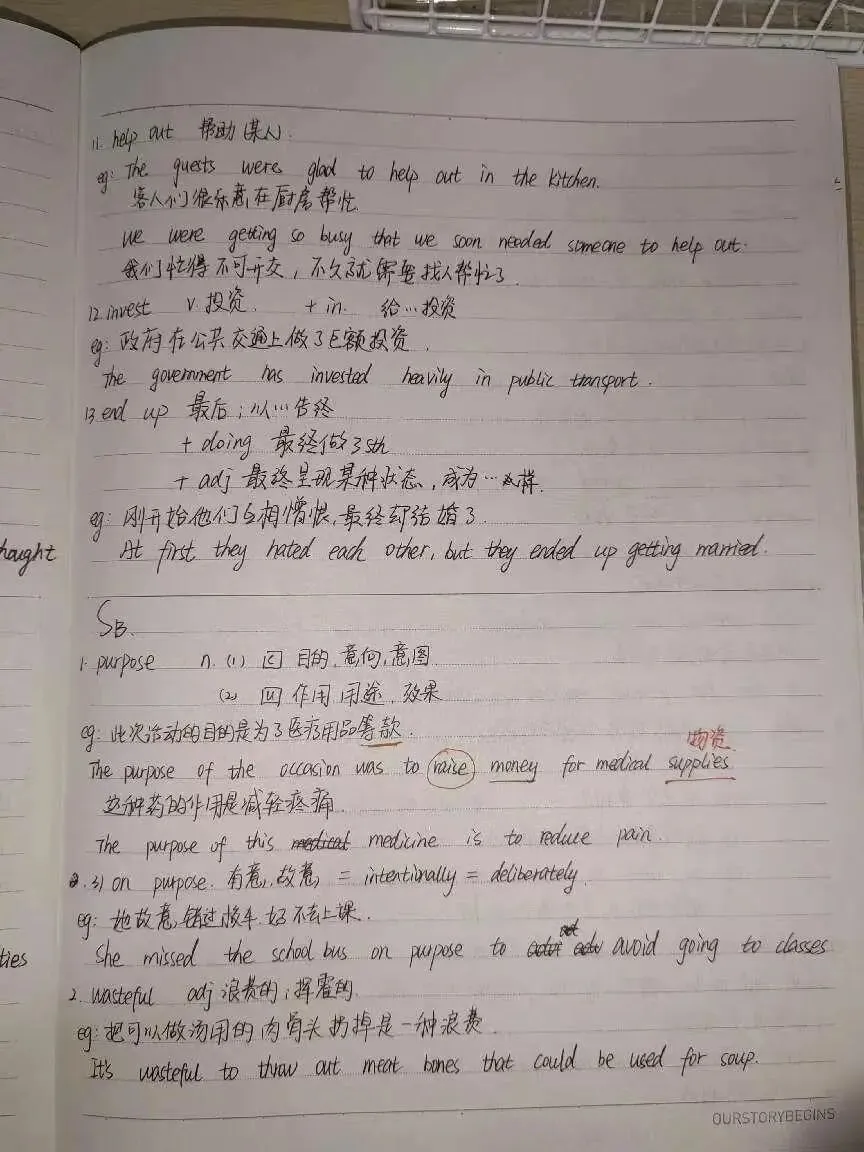 11. help out 帮助(某人).
eg: The guests were glad to help out in the kitchen.
客人们很乐意在厨房帮忙.
We were getting so busy that we soon needed someone to help out.
我们忙得不可开交，不久就需要找人帮忙了.
12 invest v. 投资. + in. 给…投资
eg: 政府在公共交通上做了巨额投资.
The government has invested heavily in public transport.
13 end up 最后；以…告终
+ doing 最终做了sth
+ adj 最终呈现某种状态，成为…
eg: 刚开始他们互相憎恨，最终却结婚了.
At first they hated each other, but they ended up getting married.
hought
SB.
1. purpose n. (1) [C] 目的.意向,意图.
(2) [U] 作用.用途.效果
eg: 此次活动的目的是为了医疗用品筹款.
物资
The purpose of the occasion was to raise money for medical supplies
这种药的作用是减轻疼痛.
The purpose of this medical medicine is to reduce pain.
3) on purpose. 有意,故意, = intentionally = deliberately.
eg: 她故意错过校车.好不去上课.
She missed the school bus on purpose to avoid going to classes
ties
2. wasteful adj 浪费的；挥霍的.
eg: 把可以做汤用的肉骨头扔掉是一种浪费.
It's wasteful to throw out meat bones that could be used for soup.
OURSTORYBEGINS